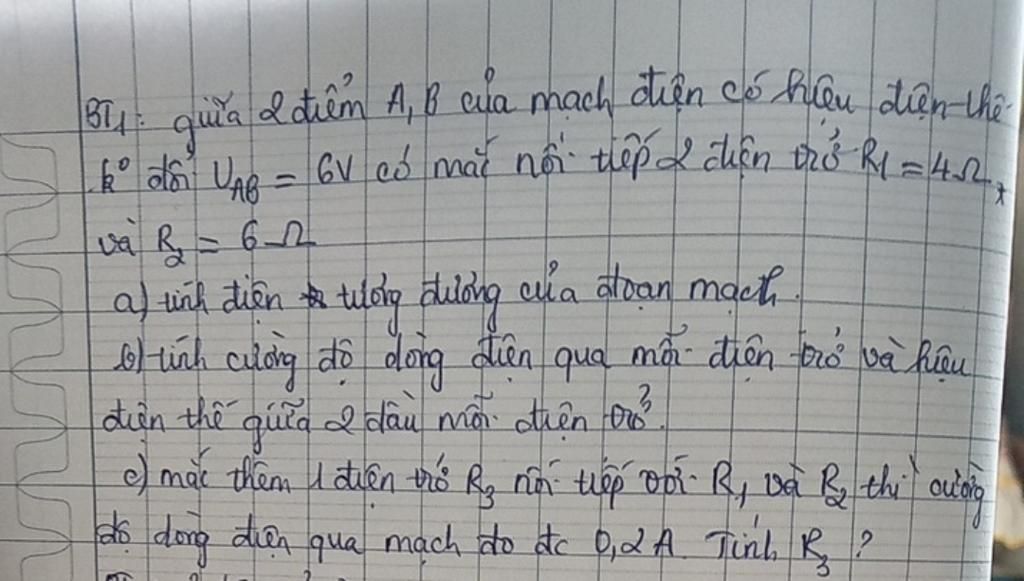 BT1: giữa 2 điểm A, B của mạch điện có hiệu điện thế
k° đổi U_AB = 6V có mắc nối tiếp 2 điện trở R1 = 4Ω
và R2 = 6Ω
a) tính điện tương đương của đoạn mạch.
b) tính cường độ dòng điện qua mỗi điện trở và hiệu
điện thế giữa 2 đầu mỗi điện trở.
c) mắc thêm 1 điện trở R3 nối tiếp với R1 và R2 thì cường
độ dòng điện qua mạch đo đc 0,2A. Tính R3?